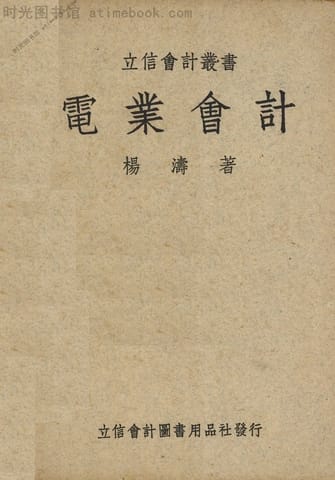 时光图书馆 atimebook.com
立信會計叢書
電業會計
楊濤著
立信會計圖書用品社發行